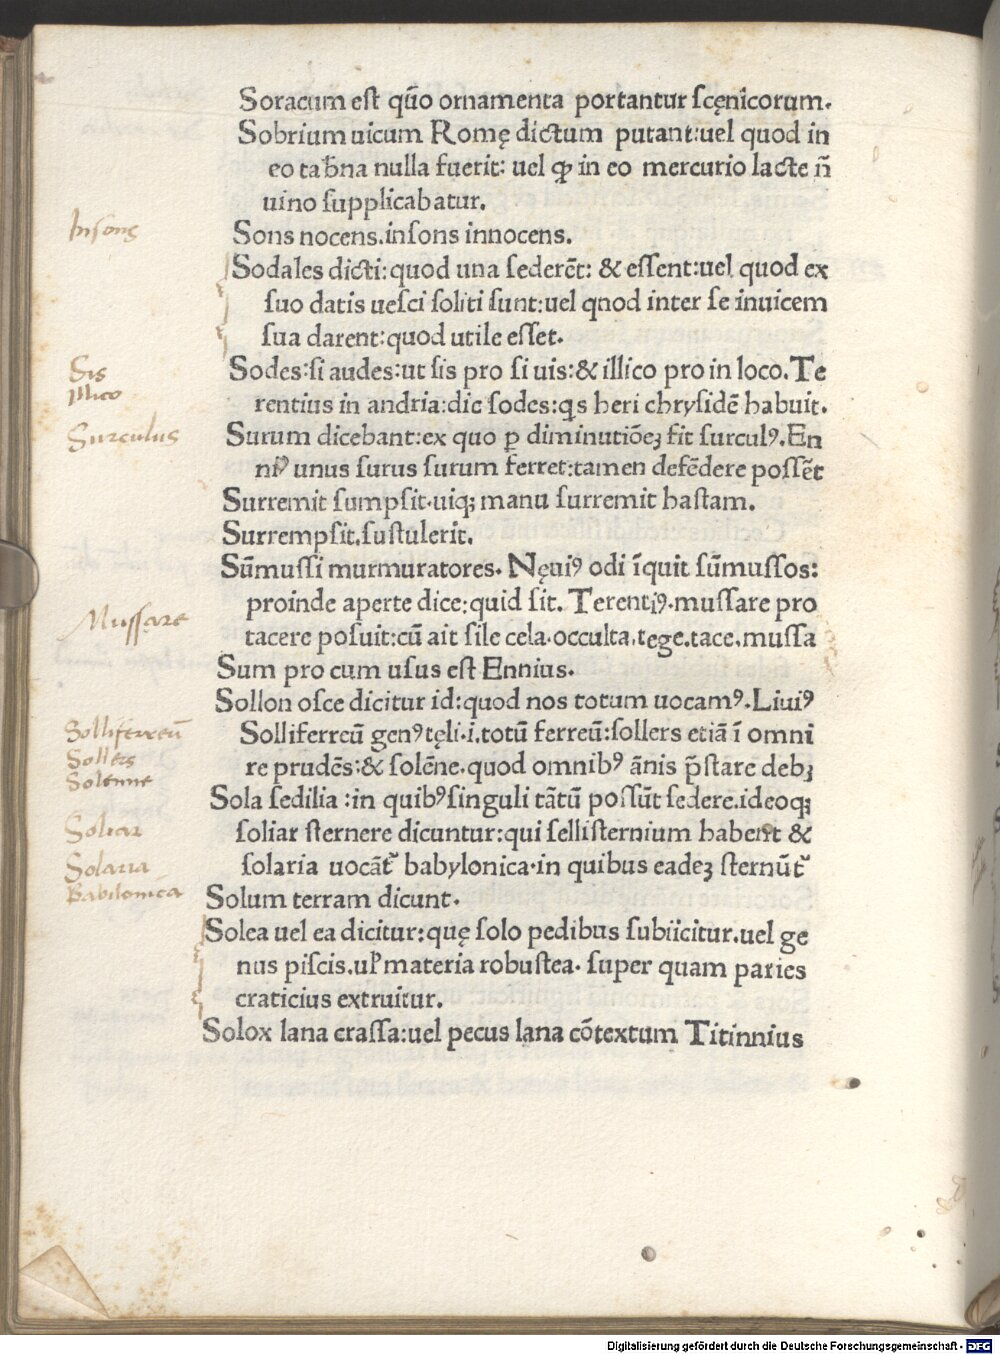 Soracum est qūo ornamenta portantur scęnicorum.
Sobrium uicum Romę dictum putant:uel quod in
eo tab̄na nulla fuerit: uel ꝙ in eo mercurio lacte n̄
uino supplicabatur.
Insons
Sons nocens.insons innocens.
Sodales dicti:quod una sederēt: & essent:uel quod ex
suo datis uesci soliti sunt:uel qnod inter se inuicem
sua darent:quod utile esset.
Sis
Sodes:si audes:ut sis pro si uis:& illico pro in loco.Te
Illico
rentius in andria:dic sodes:qs heri chrysidē habuit.
Surculus
Surum dicebant:ex quo ꝑ diminutiōeꝫ fit surculꝰ.En
niꝰ unus surus surum ferret:tamen defēdere possēt
Surremit sumpsit.uiqꝫ manu surremit hastam.
Surrempsit.sustulerit.
Sūmussi murmuratores. Nęuiꝰ odi īquit sūmussos:
Mussare
proinde aperte dice:quid sit. Terentiꝰ.mussare pro
tacere posuit:cū ait sile cela.occulta.tege.tace.mussa
Sum pro cum usus est Ennius.
Sollon osce dicitur id:quod nos totum uocamꝰ.Liuiꝰ
Solliferreū
Solliferreū genꝰ tęli.i.totū ferreū:sollers etiā ī omni
Sollers
Solenne
re prudēs:& solēne.quod omnibꝰ ānis p̄stare debꝫ
Sola sedilia :in quibꝰ singuli tātū possūt sedere.ideoqꝫ
Soliar
soliar sternere dicuntur:qui sellisternium habent &
Solaria
solaria uocāt᷑ babylonica.in quibus eadeꝫ sternūt᷑
Babilonica
Solum terram dicunt.
Solea uel ea dicitur:quę solo pedibus subiicitur.uel ge
nus piscis.ul̓ materia robustea. super quam paries
craticius extruitur.
Solox lana crassa:uel pecus lana cōtextum Titinnius
Digitalisierung gefördert durch die Deutsche Forschungsgemeinschaft - DFG